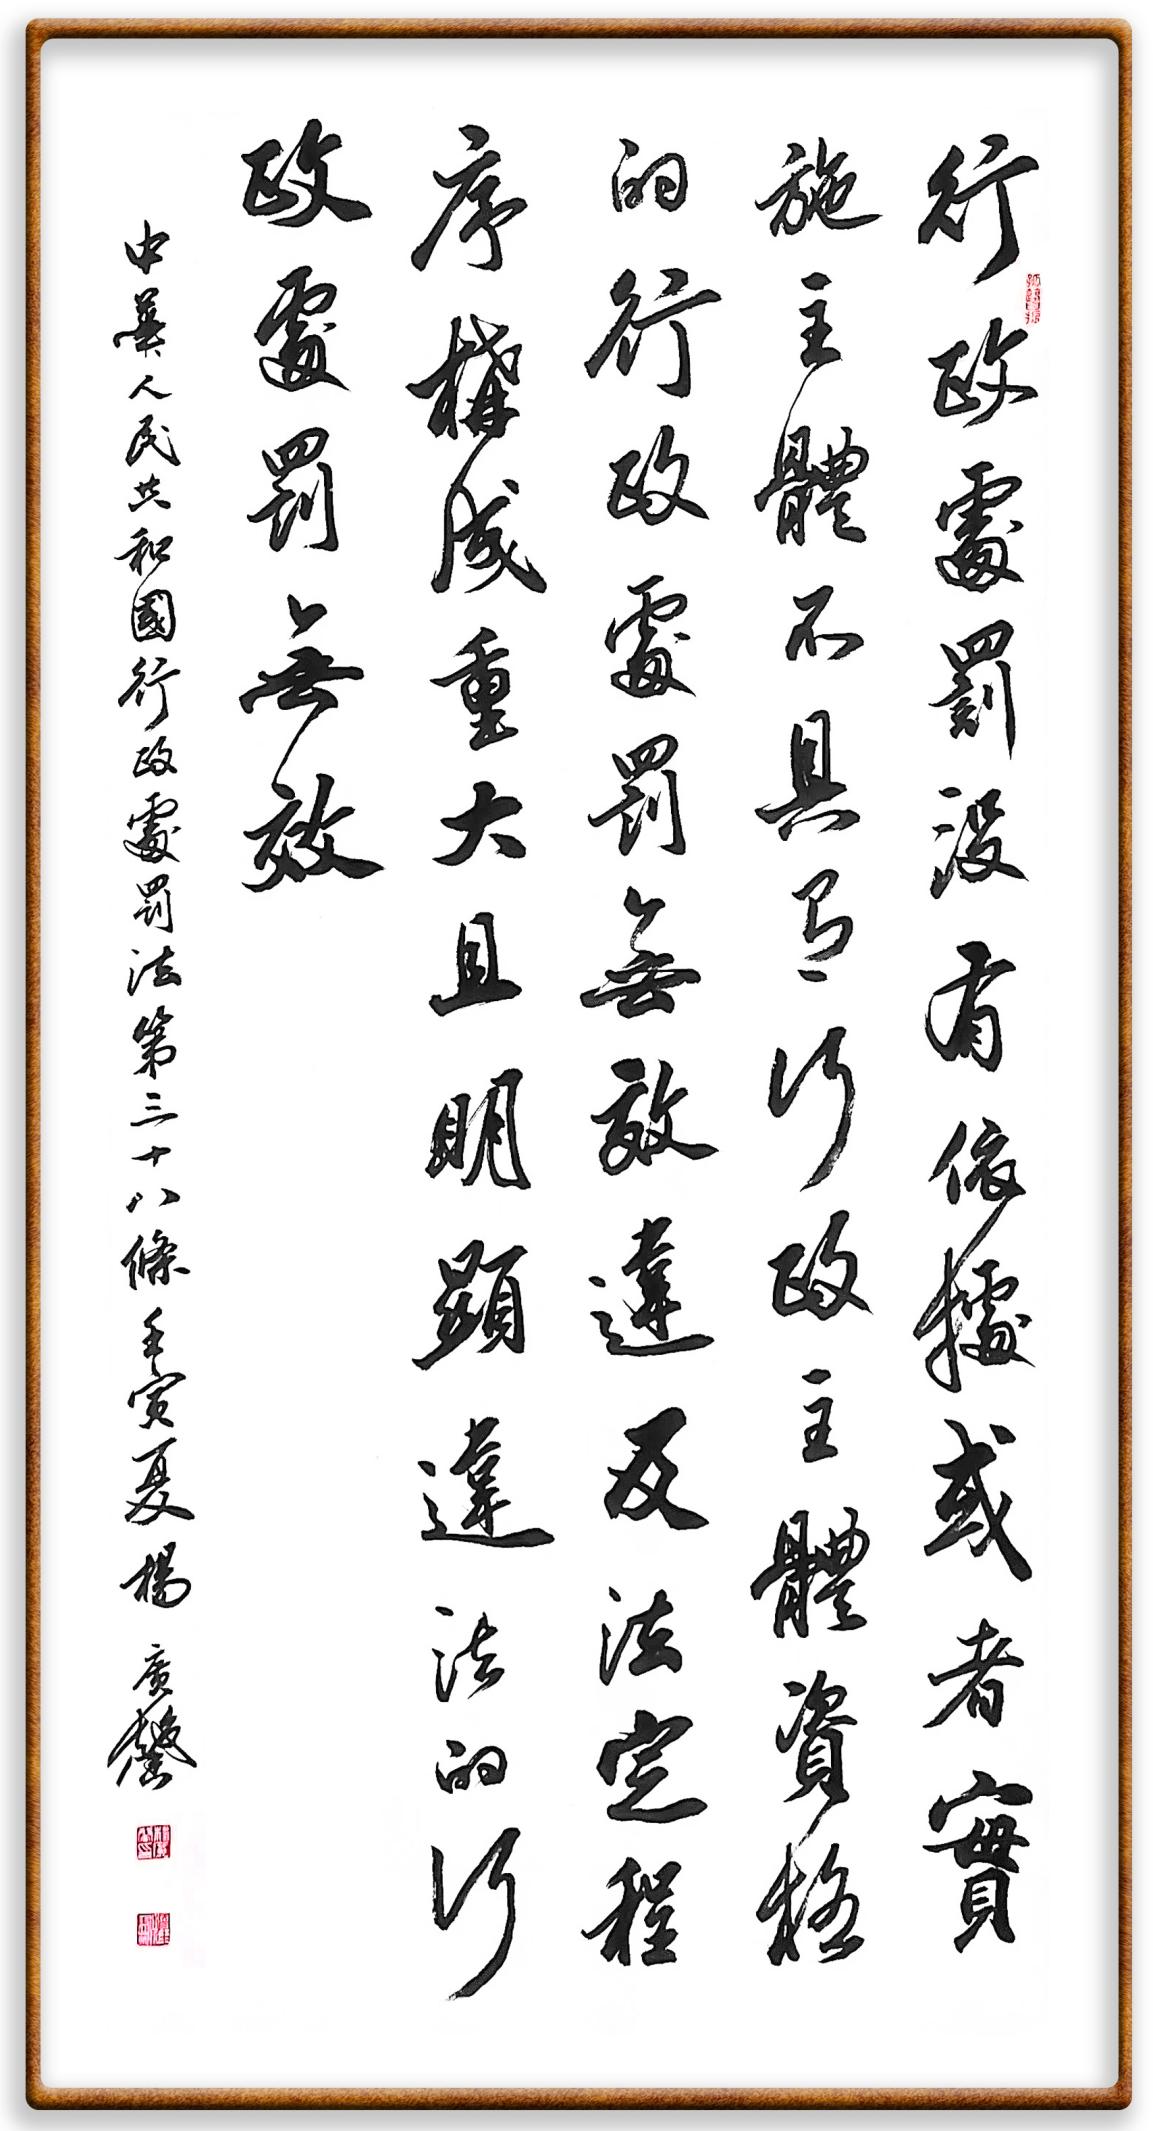 行政處罰沒有依據或者實
施主體不具有行政主體資格
的行政處罰無效違反法定程
序構成重大且明顯違法的行
政處罰無效
中華人民共和國行政處罰法第三十八條壬寅夏楊廣馨